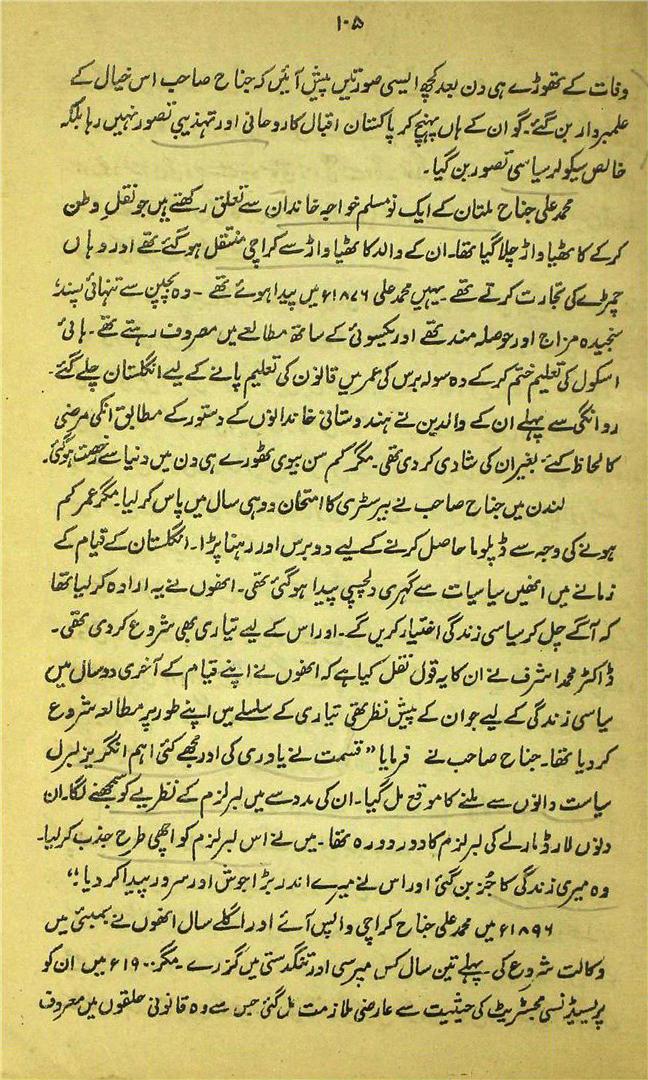 ۱۰۵
وفات کے تھوڑے ہی دن بعد کچھ ایسی صورتیں پیش آئیں کہ جناح صاحب اس خیال کے
علمبردار بن گئے۔ گو ان کے ہاں پہنچ کر پاکستان اقبال کا روحانی اور تہذیبی تصور نہیں رہا بلکہ
خالص سیکولر سیاسی تصور بن گیا۔
محمد علی جناح ملتان کے ایک نو مسلم خواجہ خاندان سے تعلق رکھتے ہیں جو نقلِ وطن
کر کے کاٹھیاواڑ چلا گیا تھا۔ ان کے والد کاٹھیاواڑ سے کراچی منتقل ہو گئے تھے اور وہاں
چمڑے کی تجارت کرتے تھے۔ یہیں محمد علی ۱۸۷۶ء میں پیدا ہوئے تھے ۔ وہ بچپن سے تنہائی پسند،
سنجیدہ مزاج اور حوصلہ مند تھے اور یکسوئی کے ساتھ مطالعے میں مصروف رہتے تھے۔ ہائی
اسکول کی تعلیم ختم کر کے وہ سولہ برس کی عمر میں قانون کی تعلیم پانے کے لیے انگلستان چلے گئے۔
روانگی سے پہلے ان کے والدین نے ہندوستانی خاندانوں کے دستور کے مطابق انکی مرضی
کا لحاظ کئے بغیر ان کی شادی کر دی تھی۔ مگر کم سن بیوی تھوڑے ہی دن میں دنیا سے رخصت ہو گئی۔
لندن میں جناح صاحب نے بیرسٹری کا امتحان دو ہی سال میں پاس کر لیا۔ مگر عمر کم
ہونے کی وجہ سے ڈپلوما حاصل کرنے کے لیے دو برس اور رہنا پڑا۔ انگلستان کے قیام کے
زمانے میں انھیں سیاسیات سے گہری دلچسپی پیدا ہو گئی تھی۔ انھوں نے یہ ارادہ کر لیا تھا
کہ آگے چل کر سیاسی زندگی اختیار کریں گے۔ اور اس کے لیے تیاری بھی شروع کر دی تھی۔
ڈاکٹر محمد اشرف نے ان کا یہ قول نقل کیا ہے کہ انھوں نے اپنے قیام کے آخری دو سال میں
سیاسی زندگی کے لیے جو ان کے پیش نظر تھی تیاری کے سلسلے میں اپنے طور پر مطالعہ شروع
کر دیا تھا۔ جناح صاحب نے فرمایا "قسمت نے یاوری کی اور مجھے کئی اہم انگریز لبرل
سیاست دانوں سے ملنے کا موقع مل گیا۔ ان کی مدد سے میں لبرلزم کے نظریے کو سمجھنے لگا۔ ان
دنوں لارڈ مارلے کی لبرلزم کا دور دورہ تھا۔ میں نے اس لبرلزم کو اچھی طرح جذب کر لیا۔
وہ میری زندگی کا جُز بن گئی اور اس نے میرے اندر بڑا جوش اور سرور پیدا کر دیا۔"
۱۸۹۶ء میں محمد علی جناح کراچی واپس آئے اور اگلے سال انھوں نے بمبئی میں
وکالت شروع کی۔ پہلے تین سال کس مپرسی اور تنگدستی میں گزرے۔ مگر ۱۹۰۰ء میں ان کو
پریسیڈنسی مجسٹریٹ کی حیثیت سے عارضی ملازمت مل گئی جس سے وہ قانونی حلقوں میں معروف